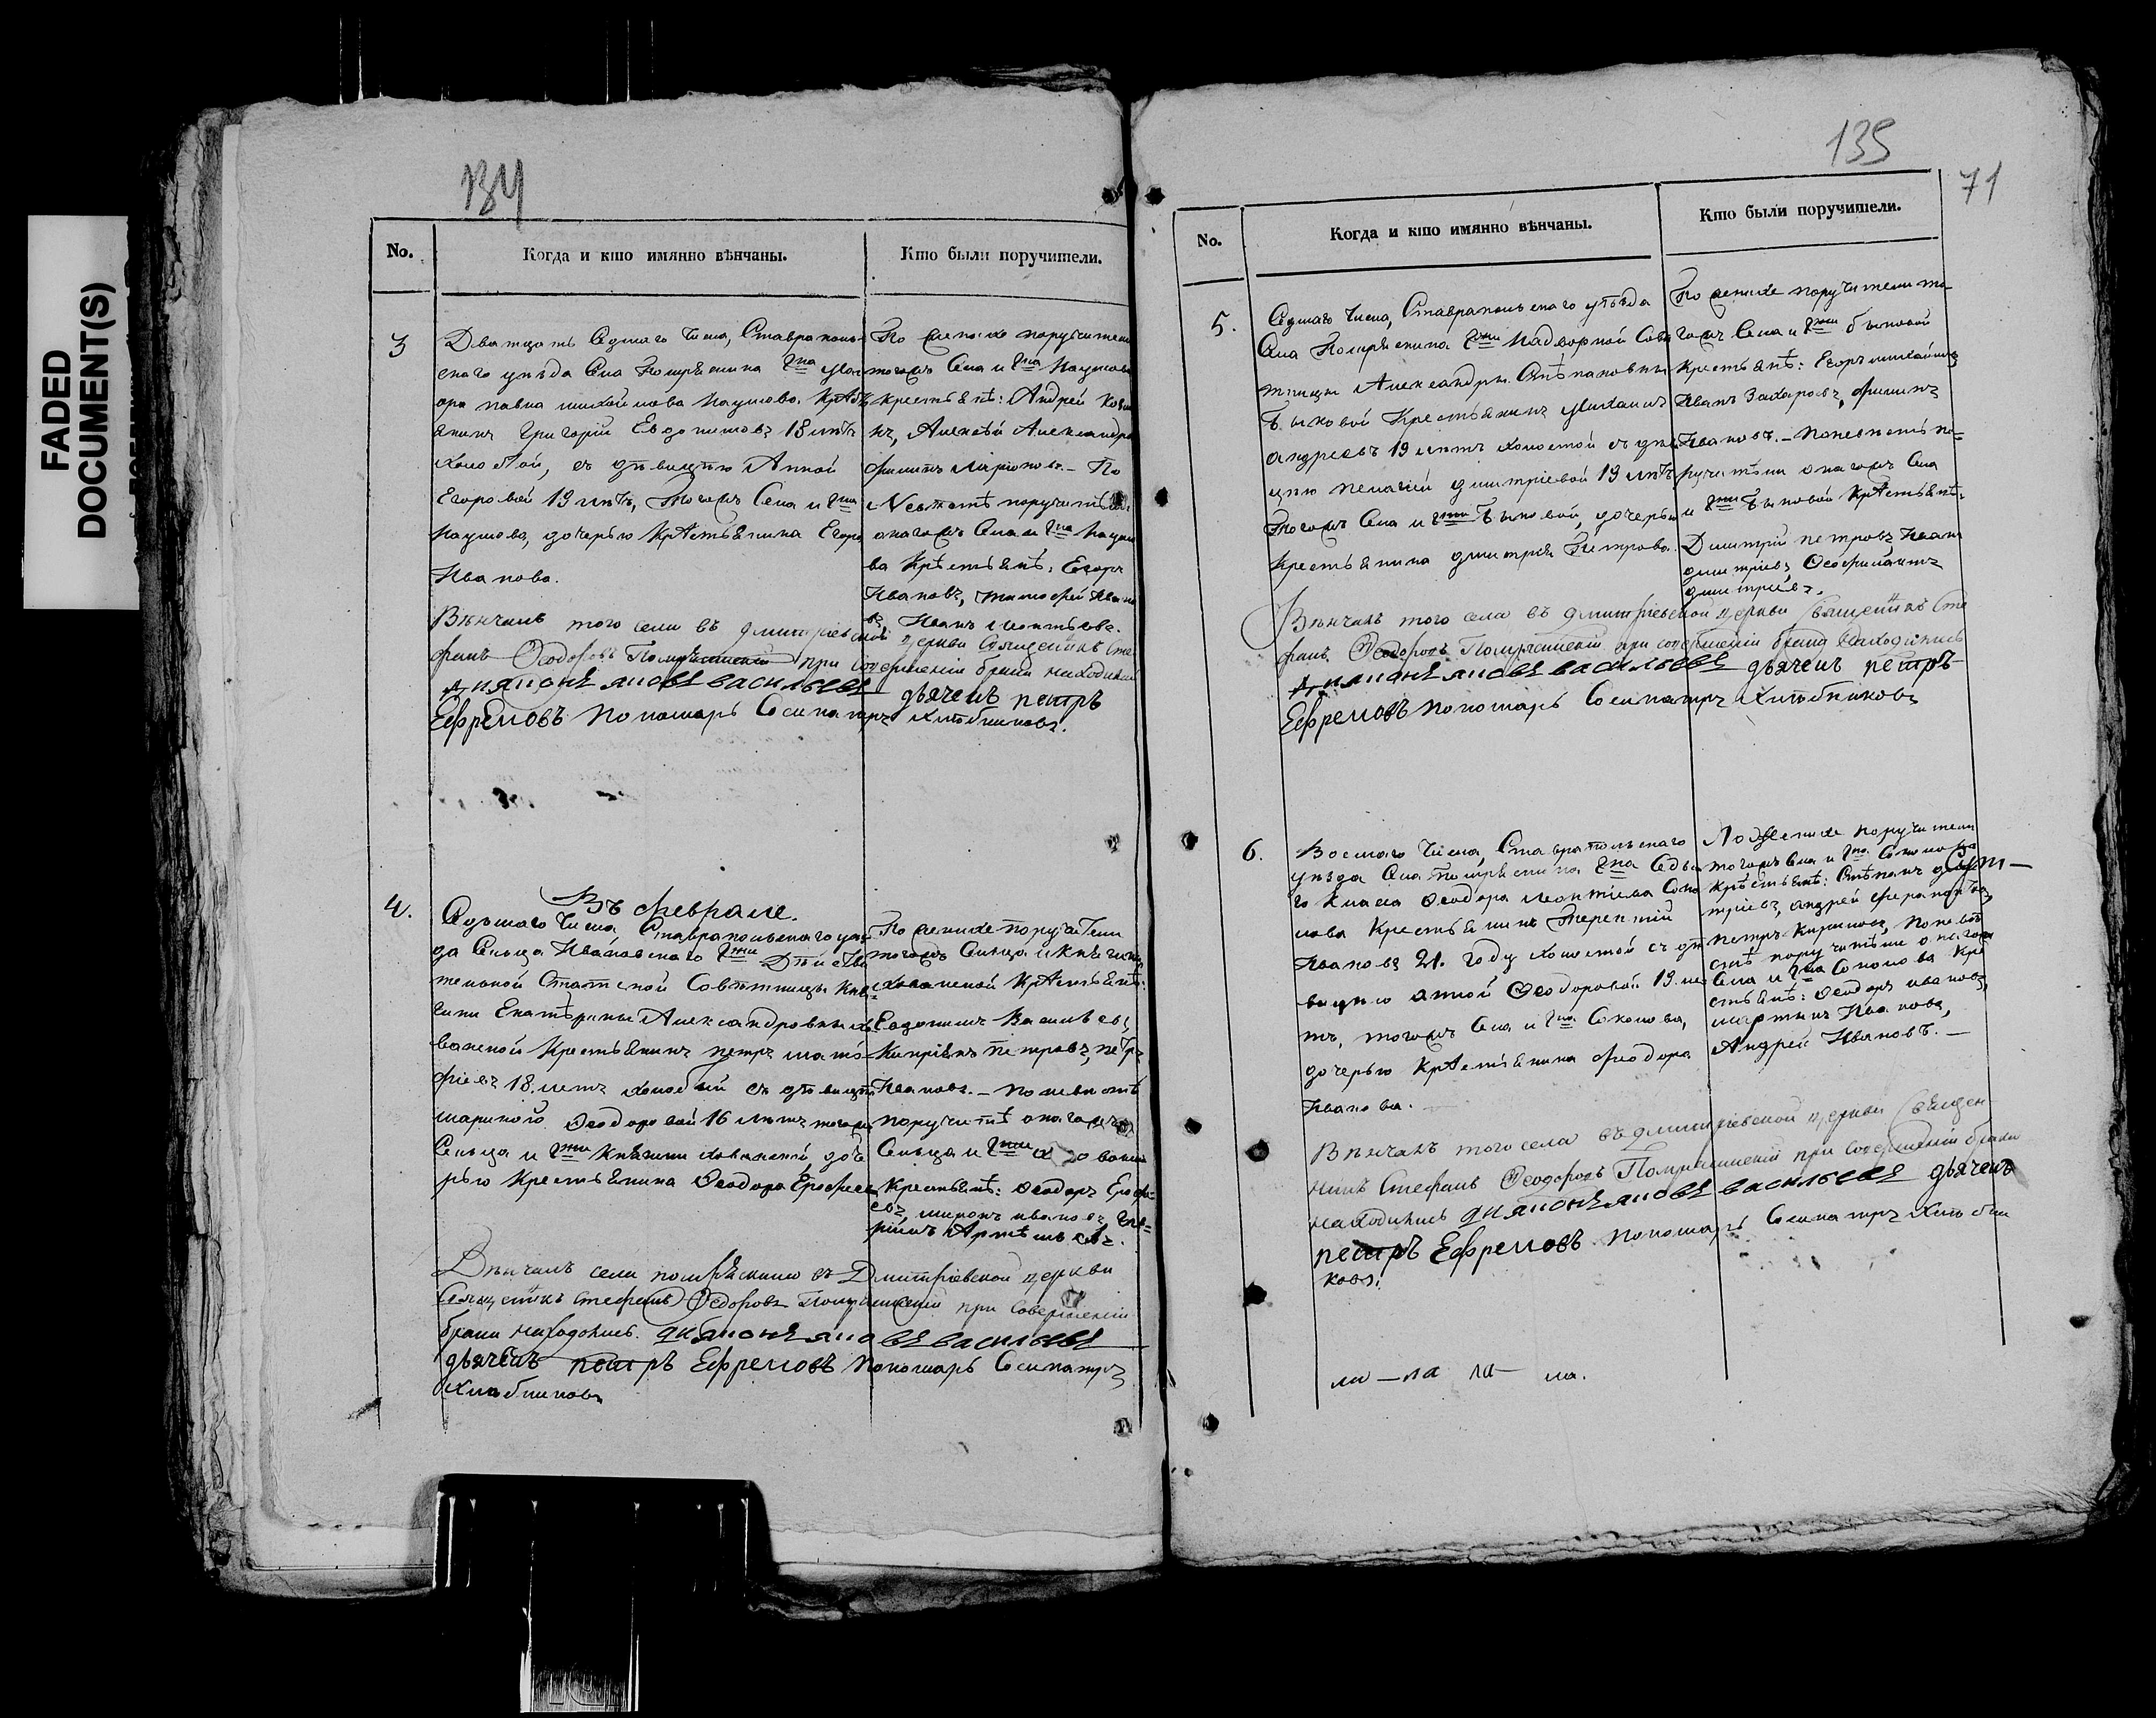 FADED
DOCUMENT(S)
134
No.
Когда и кто имянно вѣнчаны.
Кто были поручители.
3
Дватцать Седмаго Числа, Ставраполь
скаго уѣзда Села Помряскина Гна
ора павла михайлова Наумова. Крѣстѣ
янинъ Григорій Евдокимовъ 18 лѣтъ
холостой, съ дѣвицѣю Анной
Егоровой 19 лѣтъ, тогожъ Села и Гна
Наумова, дочерью Крѣстѣянина Егора
Иванова.
По женихѣ поручители
тогожъ Села и Гна Наумова
крестьянѣ: Андрей
Алексѣй Александров
филипъ Ларіоновъ. - По
Невѣстѣ поручитѣли
онагожъ Села и Гна Наумо
ва Крѣстьянѣ: Егоръ
Ивановъ, тимофей Ивано
въ, Иванъ Леонтьевъ.
Вѣнчалъ того села въ дмитріевской церкви Священикъ Сте
фанъ Феодоровъ Помряскинскій при совершеніи брака находились
диаконъ яковъ васильевъ дьячекъ петръ
Ефремовъ Пономарь Сосипатръ Хлѣбниковъ.
Въ феврале.
4.
Седьмаго Числа, Ставрапольскаго уѣз
да Сельца Ивановскаго Гжи Дѣйстви
тельной Статской Совѣтницы Кня
гини Екатѣрины Александровны Хо
ванской Крестьянинъ петръ матѳ
фіевъ 18 летъ холостой съ дѣвицѣю
мариной Феодоровой 16 лѣтъ тогожъ
Сельца и Гжи Княгини хованской, доче
рью Крестьянина Феодора Ерофеева
По женихе поручители
тогожъ Сельца и Княгини
хованской Крѣстьянѣ:
Евдокимъ Васильевъ,
Кипріянъ Петровъ, петръ
Ивановъ. - по невѣстѣ
поручитѣли онагожъ
Сельца и Гжи
Крестьянѣ: Феодоръ Ерофе-
евъ, миронъ ивановъ, Гри-
рій Артѣмьевъ.
Вѣнчалъ села помряскина въ Дмитріевской церкви
Священикъ Стефанъ Феодоровъ Помряскинскій при совершеніи
брака находились. диаконъ яковъ васильевъ
дьячекъ петръ Ефремовъ Пономарь Сосипатръ
Хлебниковъ
135
71
No.
Когда и кто имянно вѣнчаны.
Кто были поручители.
5.
Седмаго Числа, Ставрапольскаго уѣзда
Села Помряскина Гжи Надворной Сове
тницы Александры Стѣпановны
Быковой Крестьянинъ Михаилъ
андреевъ 19 лѣтъ холостой съ дѣви
цѣю пелагией дмитріевой 19 лѣтъ
тогожъ Села и Гжи Быковой, дочерью
Крестьянина дмитрія Петрова.
По женихе поручители то
гожъ Села и Гжи быковой
крестьянѣ: Егоръ михайловъ
Иванъ Захаровъ, филипъ
Ивановъ. - По невѣстѣ по-
ручитѣли онагожъ Села
и Гжи Быковой крѣстьянѣ:
Дмитрій петровъ, Иванъ
дмитріевъ, Феофилактъ
дмитріевъ.
Вѣнчалъ того села въ дмитріевской церкви Священикъ Сте
фанъ Феодоровъ Помряскинскій при совершеніи брака находились
диаконъ яковъ васильевъ дьячекъ петръ
Ефремовъ Пономарь Сосипатръ Хлѣбниковъ
6.
Восмаго Числа, Ставрапольскаго
уѣзда Села Помряскина Гна Седьма
го Класса Феодора Леонтіева Соко
лова Крестьянинъ Терентій
Ивановъ 21. году холостой съ дѣ
вицѣю анной Феодоровой 19. ле
тъ, тогожъ Села и Гна Соколова,
дочерью Крѣстьянина феодора
Иванова.
По женихе поручители
тогожъ Села и Гна Соколова
Крѣстьянѣ: Стѣпанъ дми
тріевъ, андрей ферапонтовъ,
петръ Кириловъ, По невѣ
стѣ поручитѣли онагожъ
Села и Гна Соколова Кре
стьянѣ: Феодоръ ивановъ,
мартынъ Ивановъ,
Андрей Ивановъ. -
Вѣнчалъ того села въ дмитріевской церкви Священ
никъ Стефанъ Феодоровъ Помряскинскій при совершеніи брака
находились диаконъ яковъ васильевъ дьячекъ
петръ Ефремовъ Пономарь Сосипатръ Хлѣбни
ковъ.